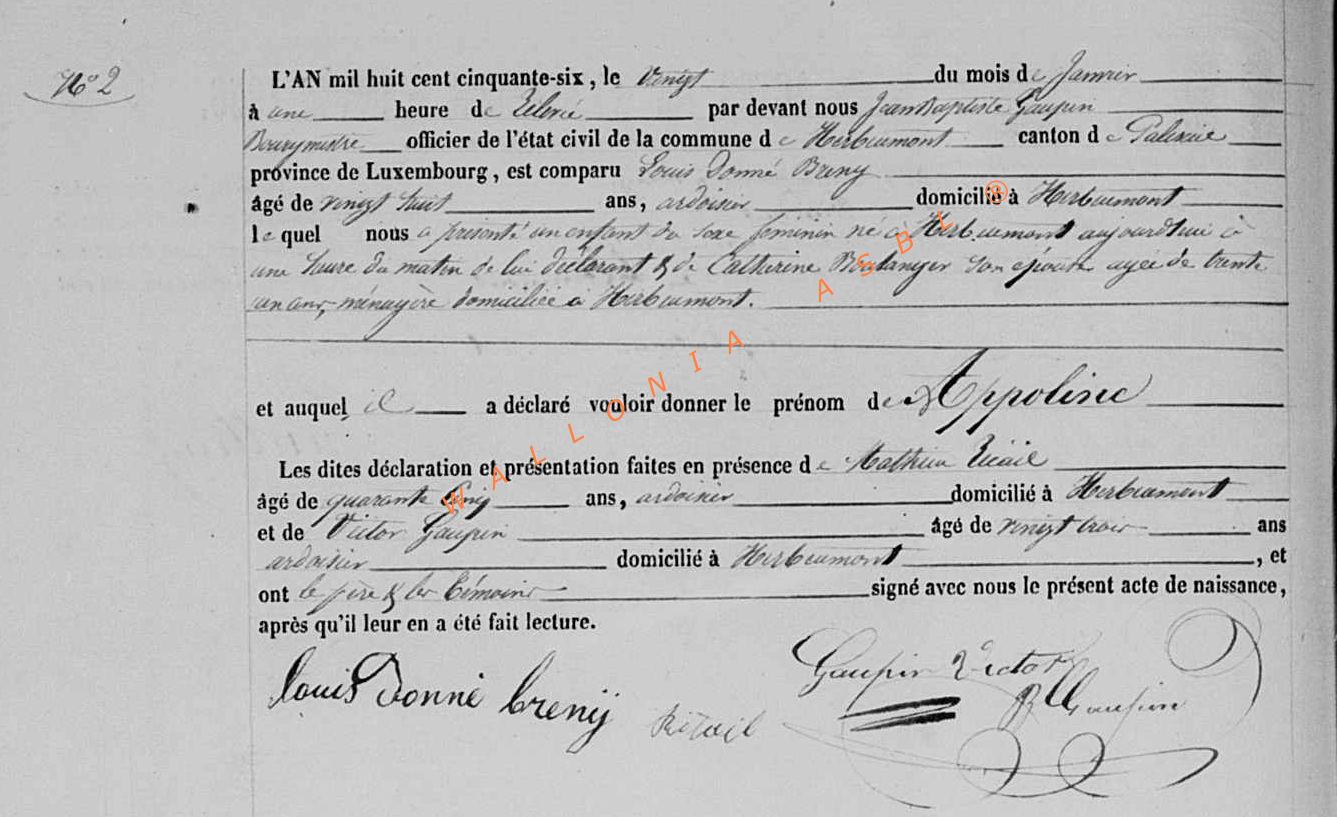 N° 2
L'AN mil huit cent cinquante-six, le vingt du mois de Janvier
à une heure de par devant nous Jean Baptiste Gaupin
Bourgmestre officier de l'état civil de la commune de Herbeumont canton de Paliseul
province de Luxembourg, est comparu Louis Donné Breny
âgé de vingt huit ans, ardoisier domicilié à Herbeumont
lequel nous a présenté un enfant du sexe féminin né à Herbeumont aujourdhui à
une heure du matin de lui déclarant & de Catherine Boulanger son épouse agée de trente
un ans, ménagère domiciliée à Herbeumont.
et auquel il a déclaré vouloir donner le prénom de Appoline
Les dites déclaration et présentation faites en présence de Mathieu
âgé de quarante cinq ans, ardoisier domicilié à Herbeumont
et de Victor Gaupin âgé de vingt trois ans
ardoisier domicilié à Herbeumont, et
ont le père & les témoins signé avec nous le présent acte de naissance,
après qu'il leur en a été fait lecture.
Louis Donné brenÿ
Gaupin Victor
Gaupin
WALLONIA ASBL ®